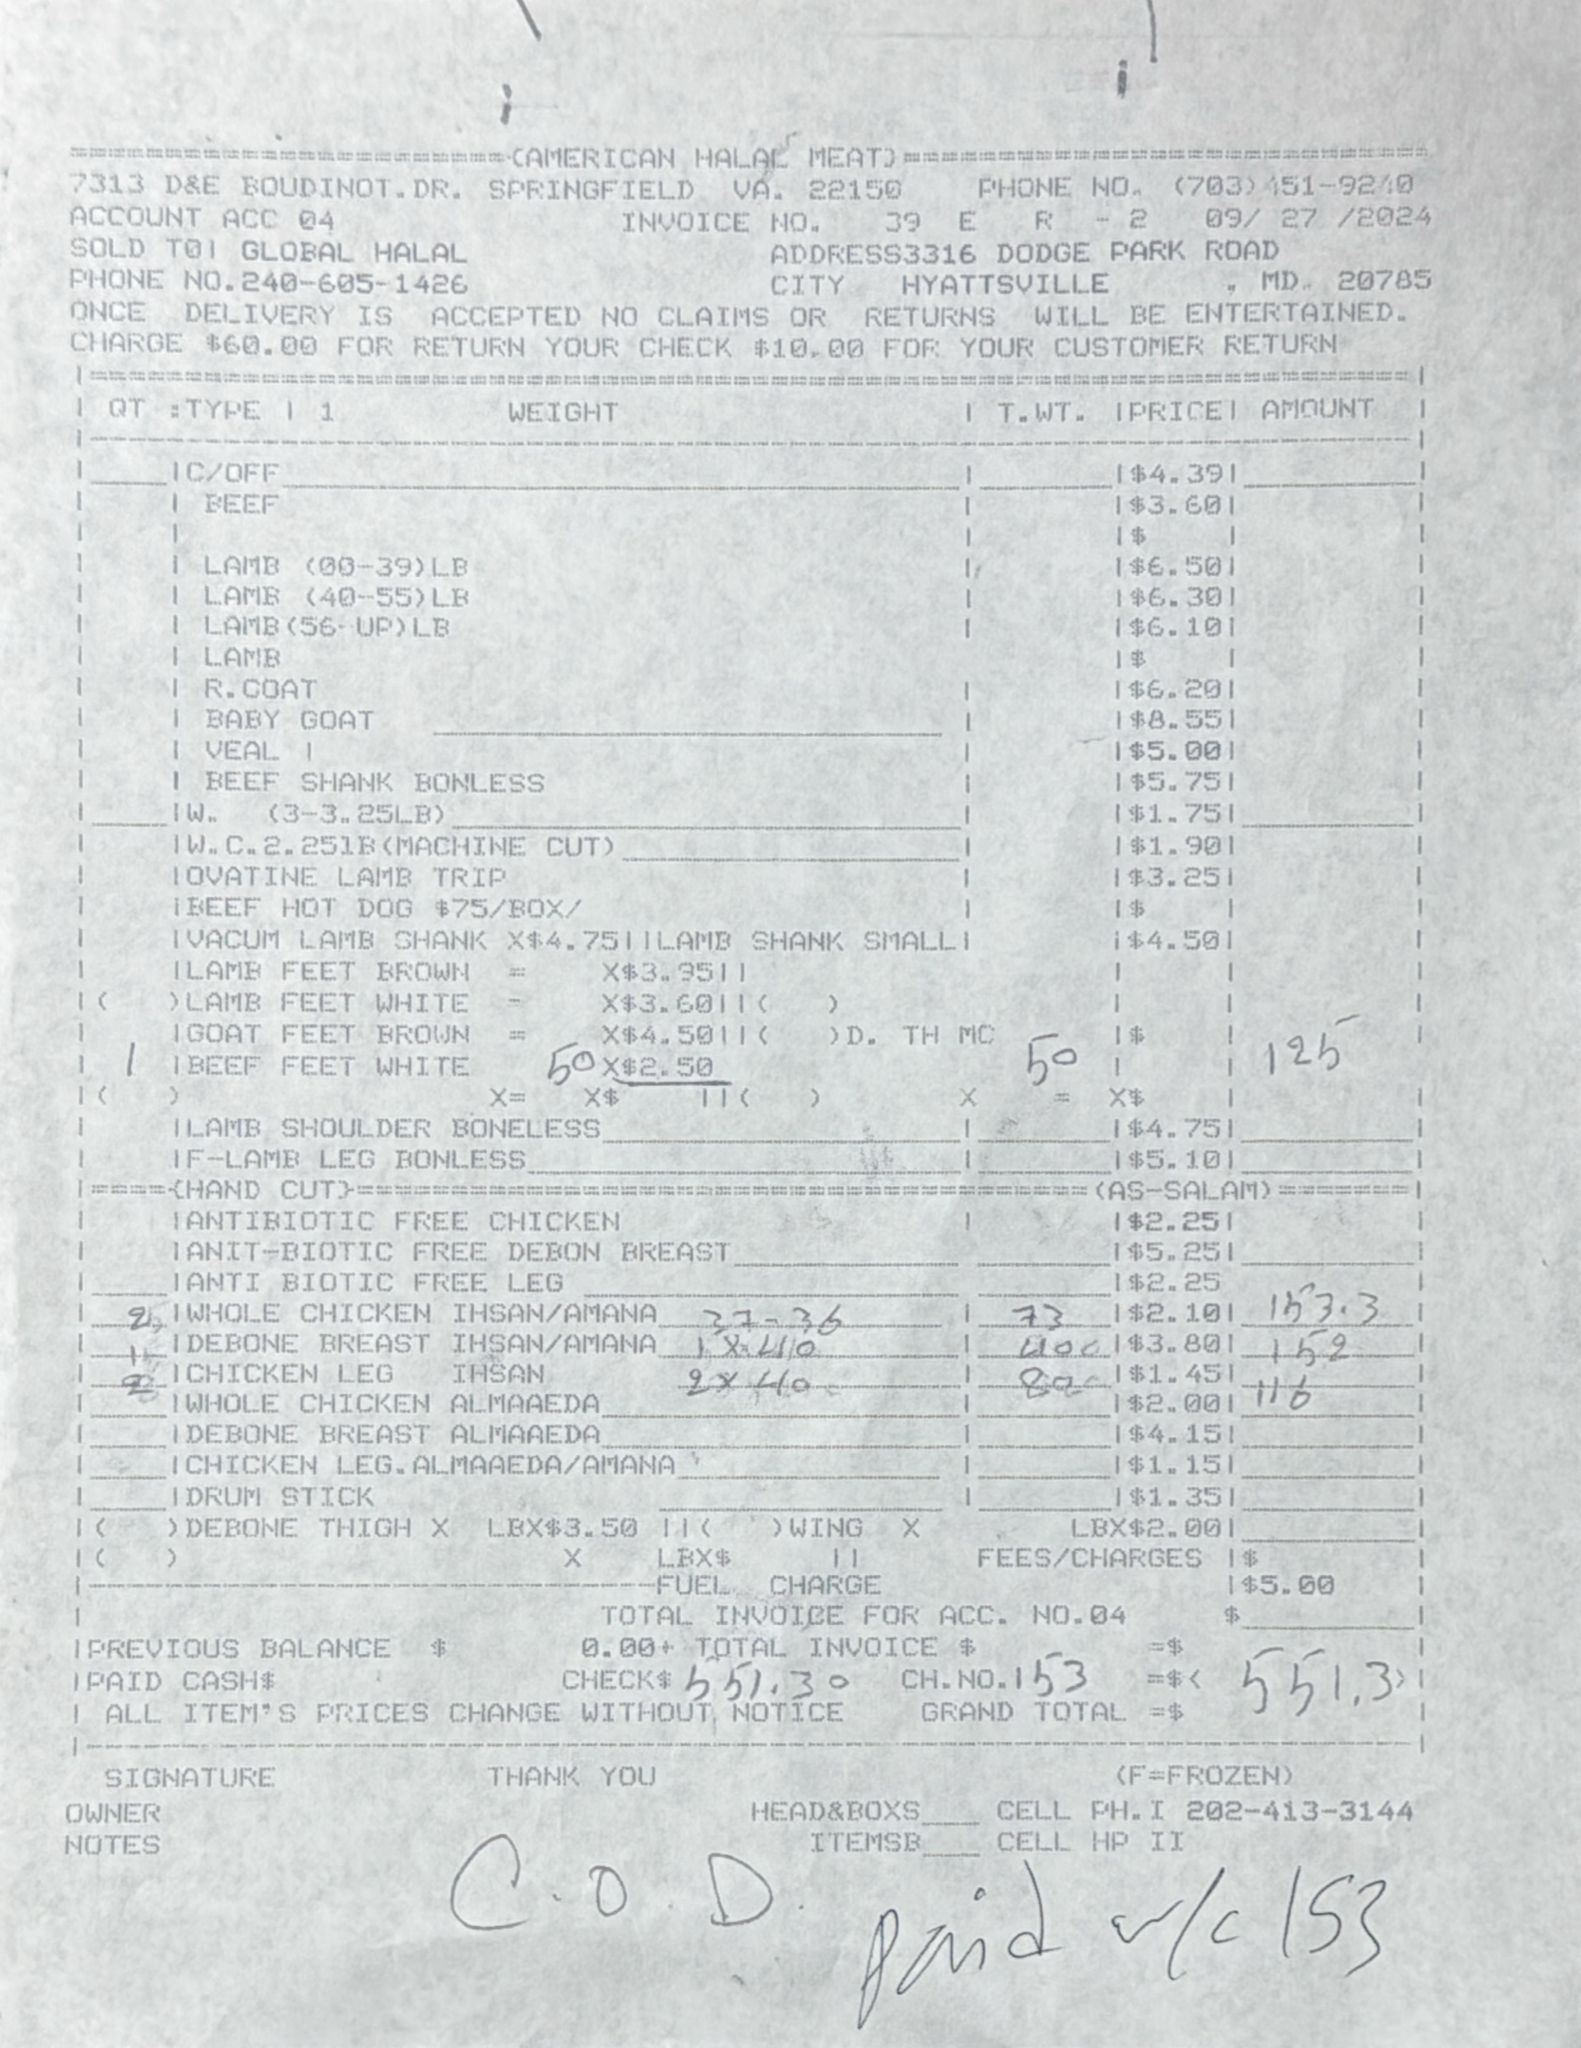 (AMERICAN HALAL MEAT)
7313 D&E BOUDINOT.DR. SPRINGFIELD VA. 22150 PHONE NO. (703)451-9240
ACCOUNT ACC 04 INVOICE NO. 39 E R - 2 09/ 27 /2024
SOLD TO| GLOBAL HALAL ADDRESS3316 DODGE PARK ROAD
PHONE NO.240-605-1426 CITY HYATTSVILLE . MD. 20785
ONCE DELIVERY IS ACCEPTED NO CLAIMS OR RETURNS WILL BE ENTERTAINED.
CHARGE $60.00 FOR RETURN YOUR CHECK $10.00 FOR YOUR CUSTOMER RETURN
| QT :TYPE | 1 WEIGHT | T.WT. |PRICE| AMOUNT |
|C/OFF |$4.39|
| BEEF |$3.60|
|$
| LAMB (00-39)LB |$6.50|
| LAMB (40-55)LB |$6.30|
| LAMB(56-UP)LB |$6.10|
| LAMB |$ |
| R.GOAT |$6.20|
| BABY GOAT |$8.55|
| VEAL | |$5.00|
| BEEF SHANK BONLESS |$5.75|
|W. (3-3.25LB) |$1.75|
|W.C.2.25lB(MACHINE CUT) |$1.90|
|OVATINE LAMB TRIP |$3.25|
|BEEF HOT DOG $75/BOX/ |$ |
|VACUM LAMB SHANK X$4.75||LAMB SHANK SMALL| |$4.50|
|LAMB FEET BROWN = X$3.95||
|( )LAMB FEET WHITE - X$3.60||( )
|GOAT FEET BROWN = X$4.50||( )D. TH MC |$
1 |BEEF FEET WHITE 50 X$2.50 50 125
|( ) X= X$ ||( ) X = X$
|LAMB SHOULDER BONELESS |$4.75|
|F-LAMB LEG BONLESS |$5.10|
|====(HAND CUT)====(AS-SALAM)====|
|ANTIBIOTIC FREE CHICKEN |$2.25|
|ANIT-BIOTIC FREE DEBON BREAST |$5.25|
|ANTI BIOTIC FREE LEG |$2.25
2 |WHOLE CHICKEN IHSAN/AMANA 37-36 73 |$2.10| 153.3
1 |DEBONE BREAST IHSAN/AMANA 1X40 40 |$3.80| 152
2 |CHICKEN LEG IHSAN 2X40 80 |$1.45| 116
|WHOLE CHICKEN ALMAAEDA |$2.00|
|DEBONE BREAST ALMAAEDA |$4.15|
|CHICKEN LEG.ALMAAEDA/AMANA |$1.15|
|DRUM STICK |$1.35|
|( )DEBONE THIGH X LBX$3.50 ||( )WING X LBX$2.00|
|( ) X LBX$ || FEES/CHARGES |$
FUEL CHARGE |$5.00
TOTAL INVOICE FOR ACC. NO.04 $
|PREVIOUS BALANCE $ 0.00+ TOTAL INVOICE $ =$
|PAID CASH$ CHECK$ 551.30 CH.NO.153 =$< 551.3>
| ALL ITEM'S PRICES CHANGE WITHOUT NOTICE GRAND TOTAL =$
SIGNATURE THANK YOU (F=FROZEN)
OWNER HEAD&BOXS CELL PH.I 202-413-3144
NOTES ITEMSB CELL HP II
C.O.D.
paid w/c 153